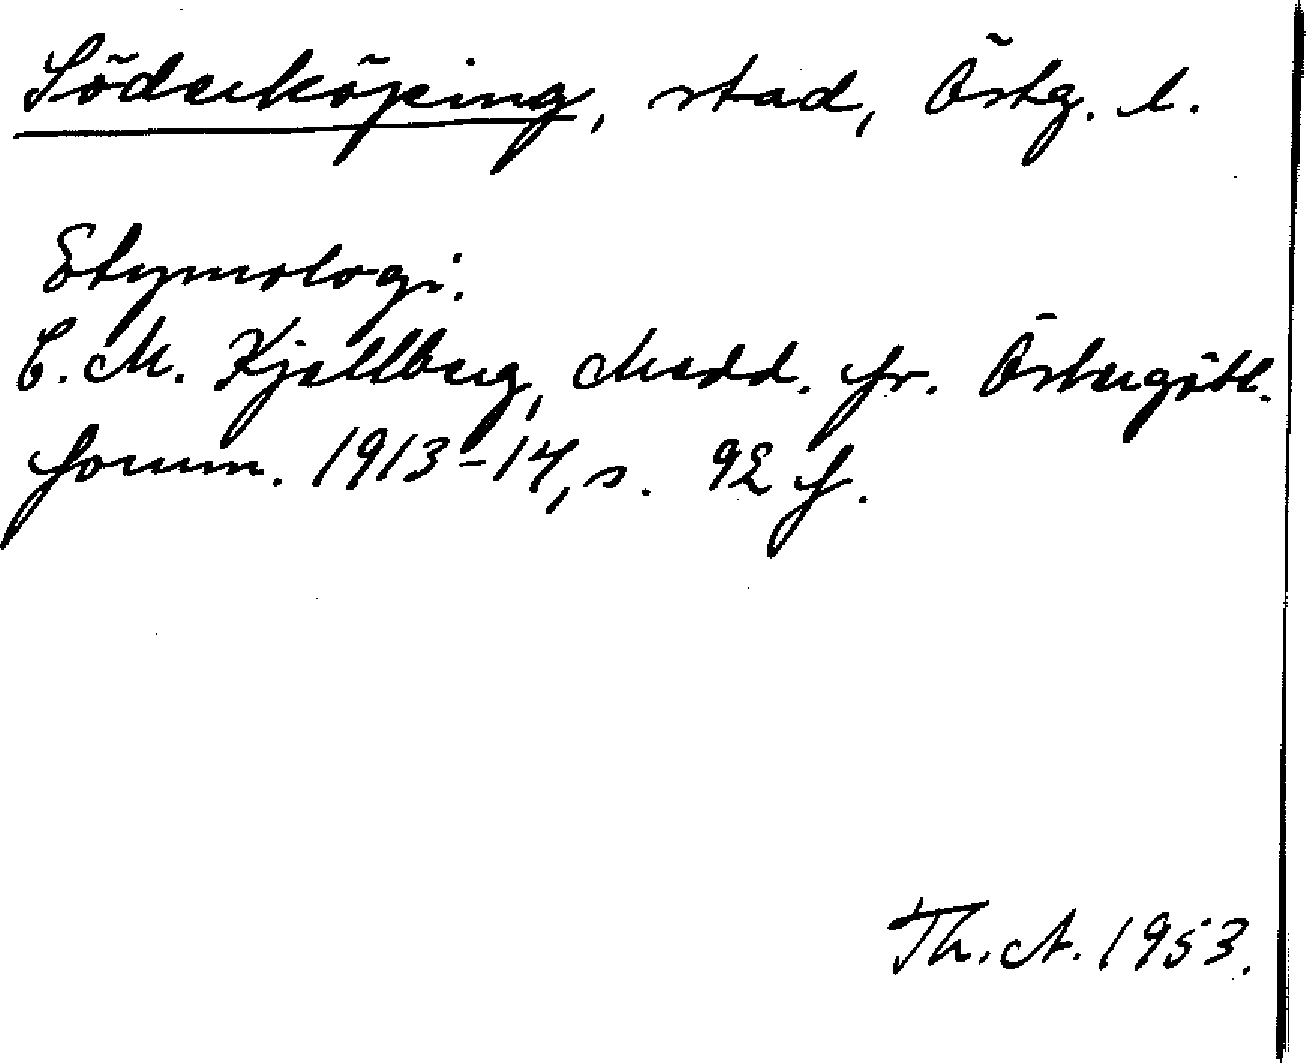 Söderköping, stad, Östg. l.
Etymologi.
C. M. Kjellberg, Medd. fr. Östergötl.
fornm. 1913-14, s. 92 f.
Th. A. 1953.